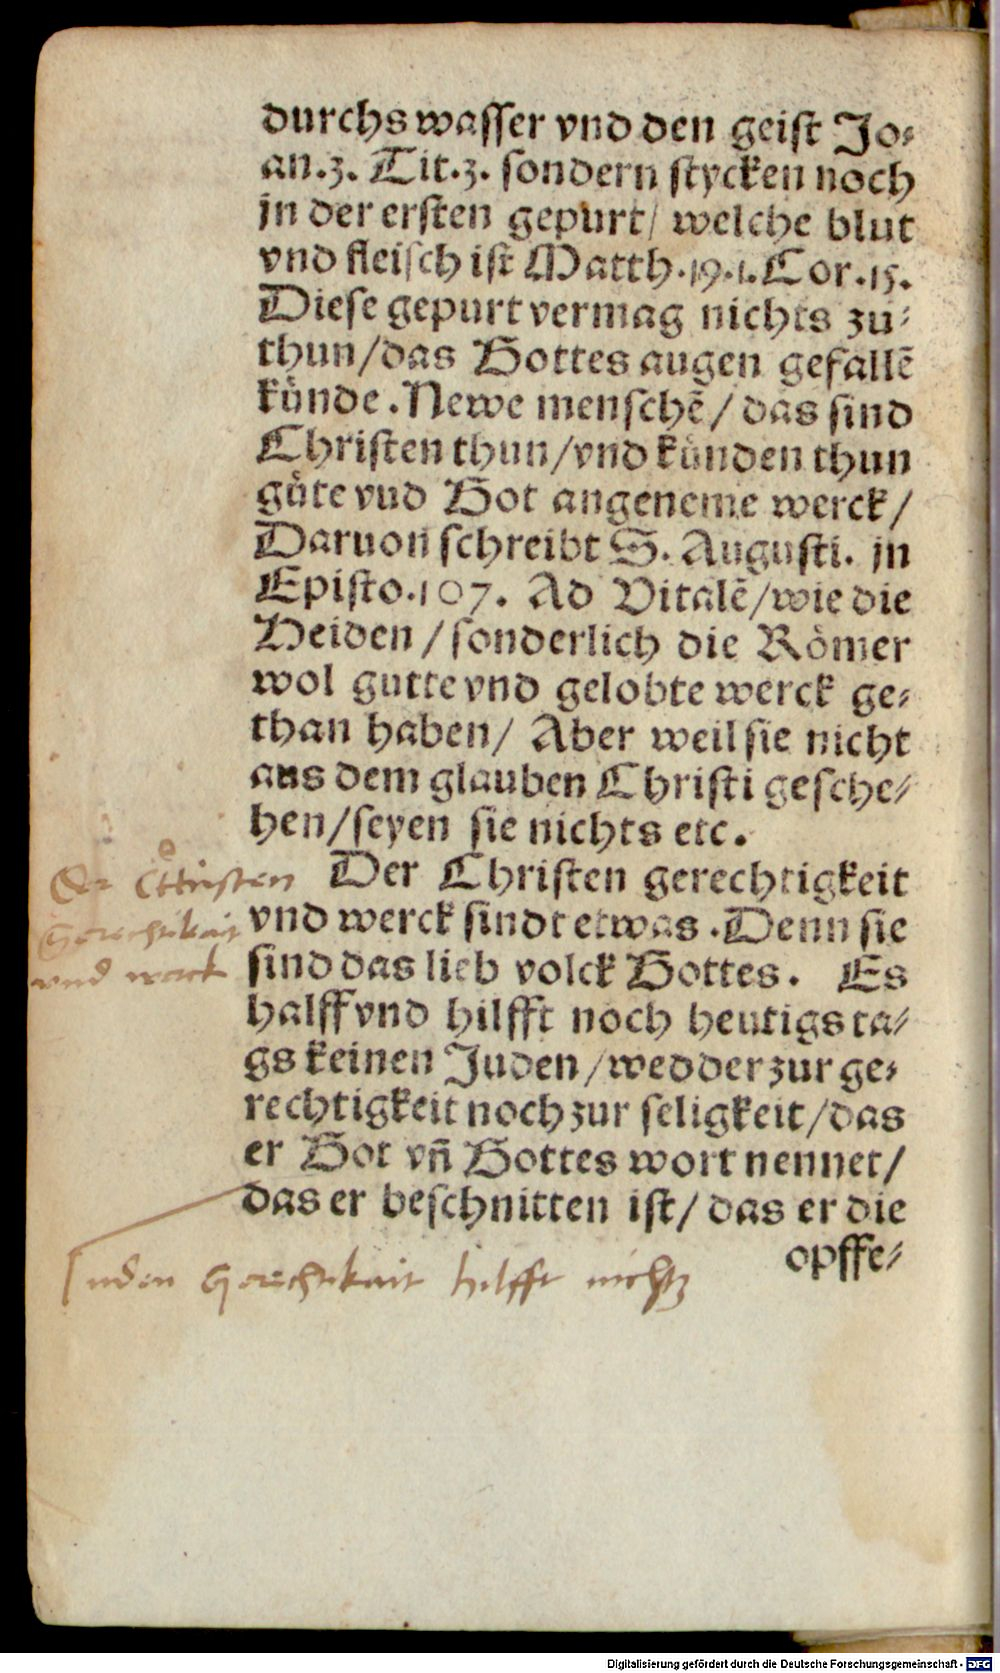 durchs wasser vnd den geist Jo⸗
an.3. Tit.3. sondern stycken noch
jn der ersten gepurt/ welche blut
vnd fleisch ist Matth.19.1.Cor.15.
Diese gepurt vermag nichts zu⸗
thun/das Gottes augen gefallẽ
kuͤnde. Newe menschẽ/ das sind
Christen thun/vnd kuͤnden thun
guͤte vud Got angeneme werck/
Daruon schreibt S. Augusti. jn
Episto.107. Ad Vitalẽ/wie die
Heiden/sonderlich die Roͤmer
wol gutte vnd gelobte werck ge⸗
than haben/ Aber weil sie nicht
aus dem glauben Christi gesche⸗
hen/seyen sie nichts etc.
Der Christen gerechtigkeit
vnd werck sindt etwas. Denn sie
sind das lieb volck Gottes. Es
halff vnd hilfft noch heutigs ta⸗
gs keinen Juden/wedder zur ge⸗
rechtigkeit noch zur seligkeit/das
er Got vñ Gottes wort nennet/
das er beschnitten ist/ das er die
opffe⸗
Der Christen
Gerechtikait
vnd werck
Juden Gerechtikait hilfft nichtz
Digitalisierung gefördert durch die Deutsche Forschungsgemeinschaft - DFG